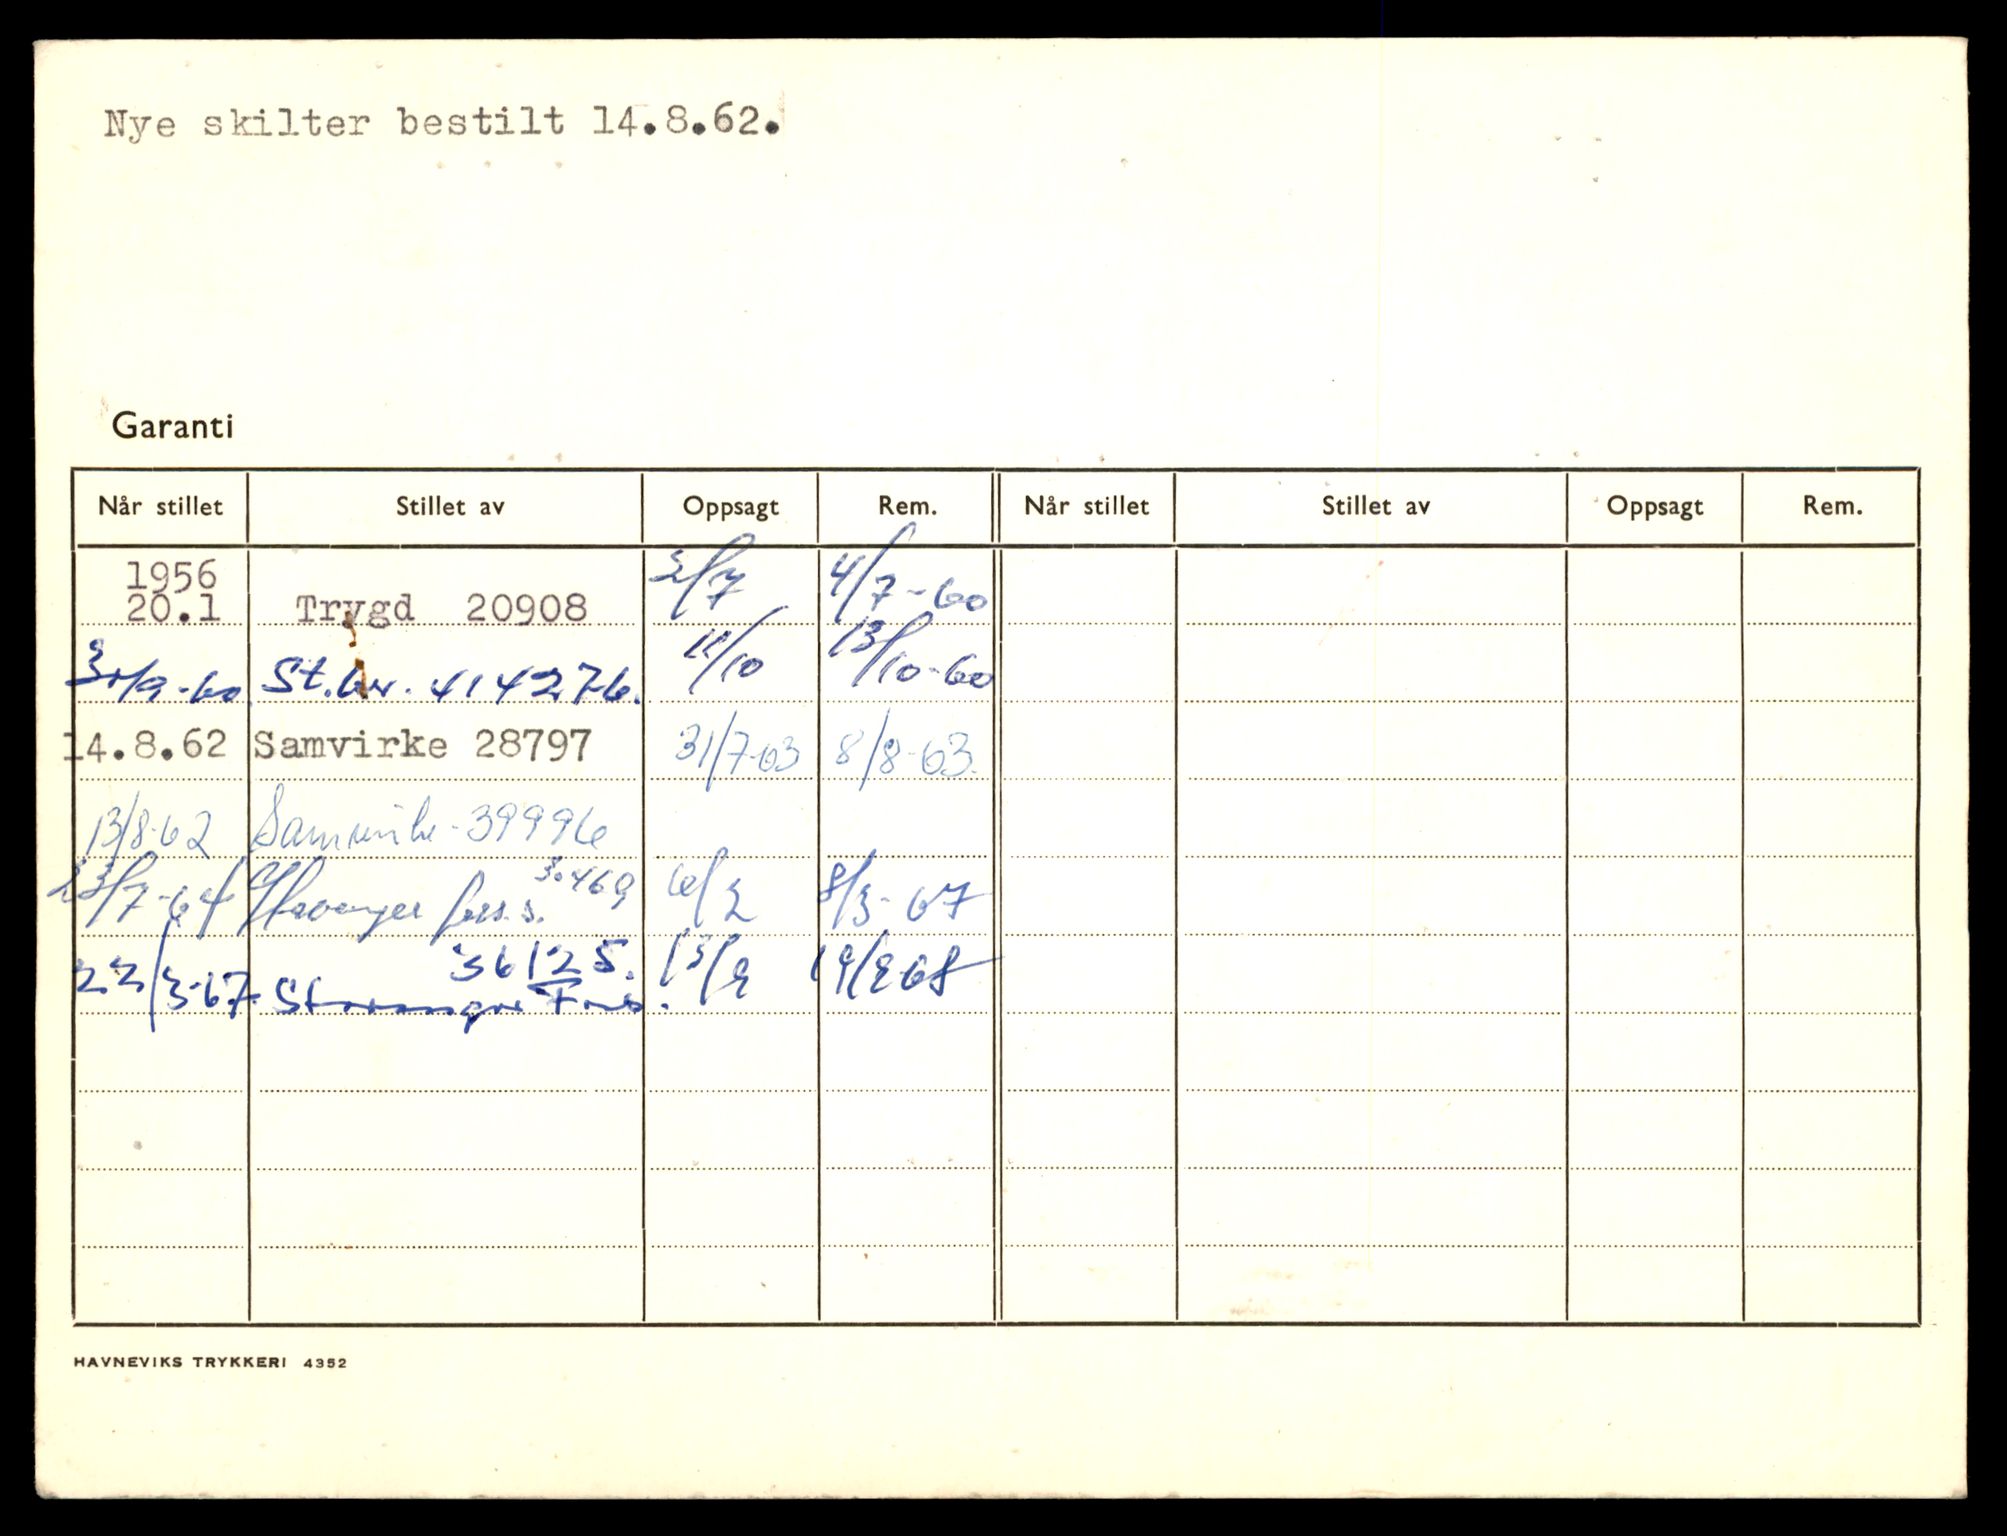 Nye skilter bestilt 14.8.62.
Garanti
Når stillet Stillet av Oppsagt Rem. Når stillet Stillet av Oppsagt Rem.
1956
20.1 Trygd 20908 2/7 4/7-60
/9-60 St.br. 414276. 11/10 13/10-60
14.8.62 Samvirke 28797 31/7-63 8/8-63.
13/8-62 Samvirke - 39996
23/7-64 Stavanger fors.s. 30469 6/2 8/3-67
22/3-67 Stavanger 36125. 13/2 19/2-68
HAVNEVIKS TRYKKERI 4352